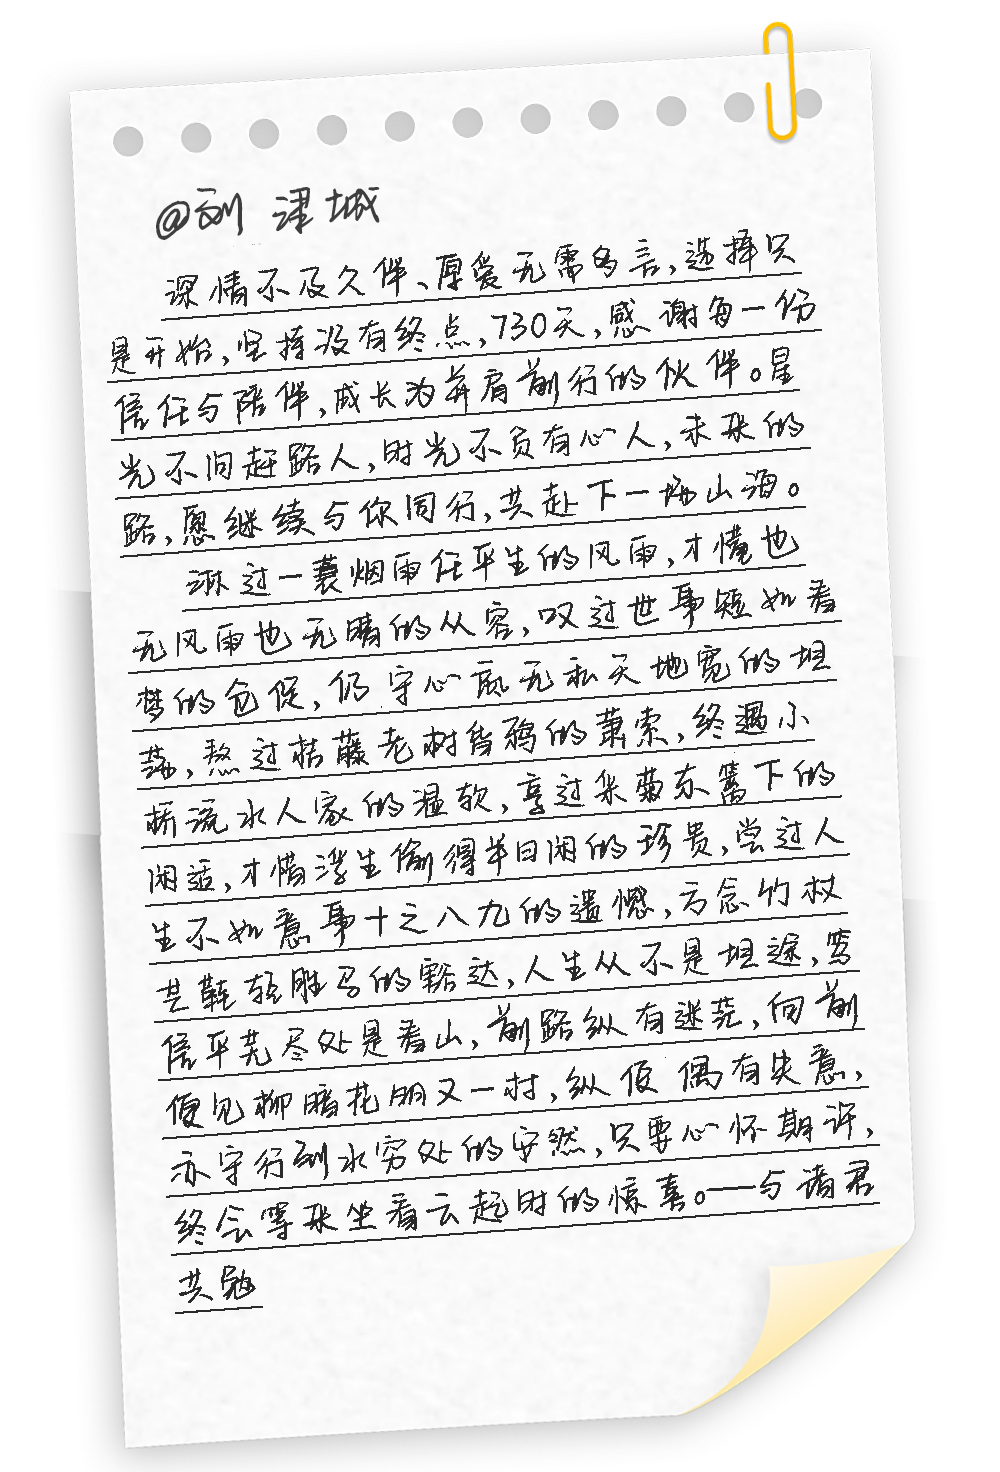 @刘泽城
深情不及久伴、厚爱无需多言,选择只
是开始,坚持没有终点,730天,感谢每一份
信任与陪伴,成长为并肩前行的伙伴。星
光不问赶路人,时光不负有心人,未来的
路,愿继续与你同行,共赴下一场山海。
淋过一蓑烟雨任平生的风雨,才懂也
无风雨也无晴的从容,叹过世事短如春
梦的仓促,仍守心底无私天地宽的坦
荡,熬过枯藤老树昏鸦的萧索,终遇小
桥流水人家的温软,享过采菊东篱下的
闲适,才惜浮生偷得半日闲的珍贵,尝过人
生不如意事十之八九的遗憾,方念竹杖
芒鞋轻胜马的豁达,人生从不是坦途,笃
信平芜尽处是春山,前路纵有迷茫,向前
便见柳暗花明又一村,纵使偶有失意,
亦守行到水穷处的安然,只要心怀期许,
终会等来坐看云起时的惊喜。——与诸君
共勉